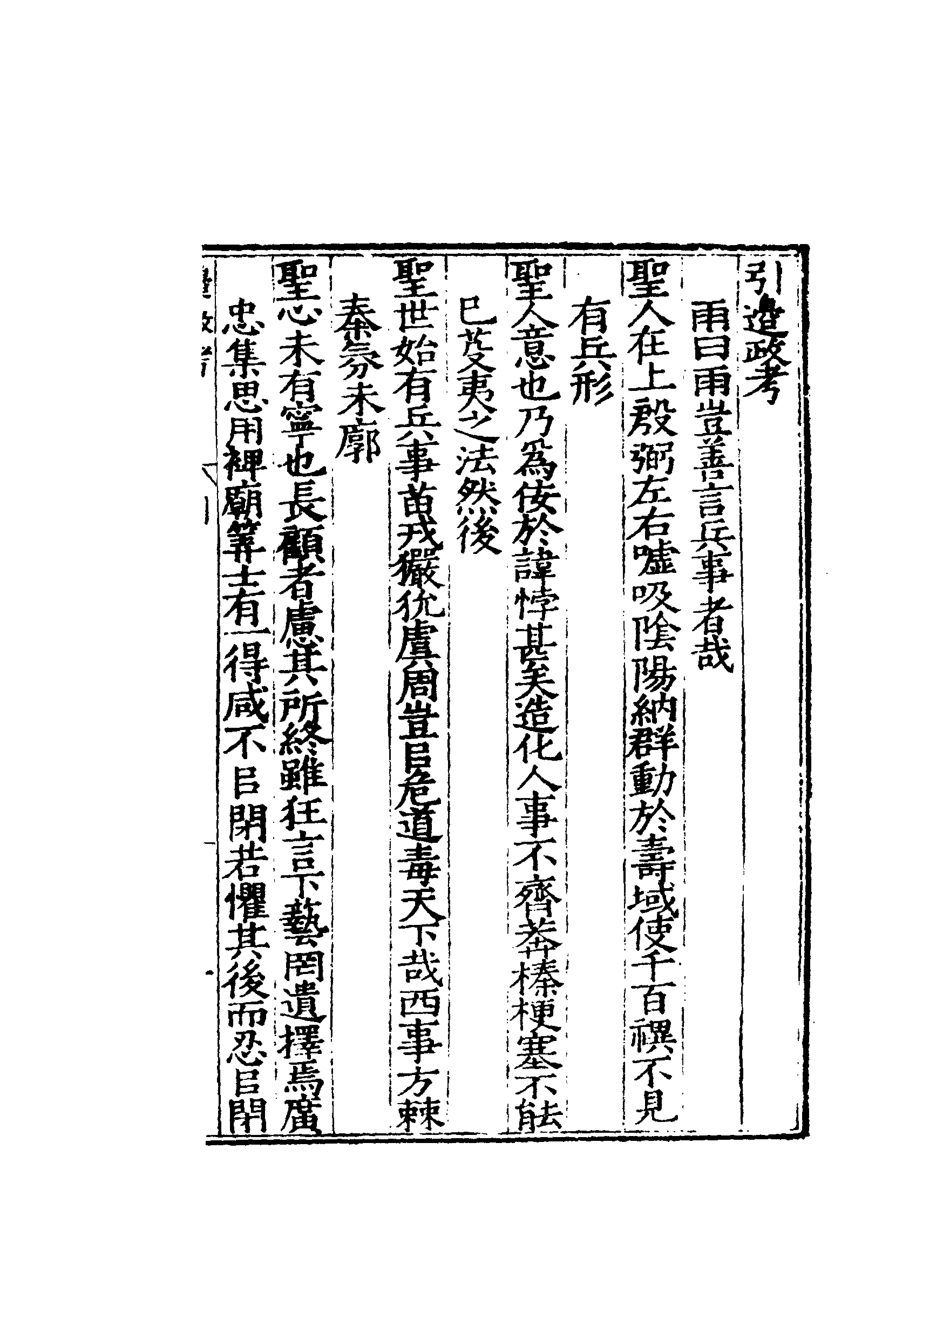 引邉政考
雨曰雨豈善言兵事者哉
聖人在上殷弼左右嘘吸陰陽納群動於壽域使千百禩不見
有兵形
聖人意也乃爲佞於諱悖甚矣造化人事不齊莽榛梗塞不能
已芟夷之法然後
聖世始有兵事苗戎玁狁虞周豈㠯危道毒天下哉西事方棘
秦氛未廓
聖心未有寧也長顧者慮其所終雖狂言下藝罔遺擇焉廣
忠集思用裨廟筭士有一得咸不㠯閉若懼其後而忍㠯閉
邊政考